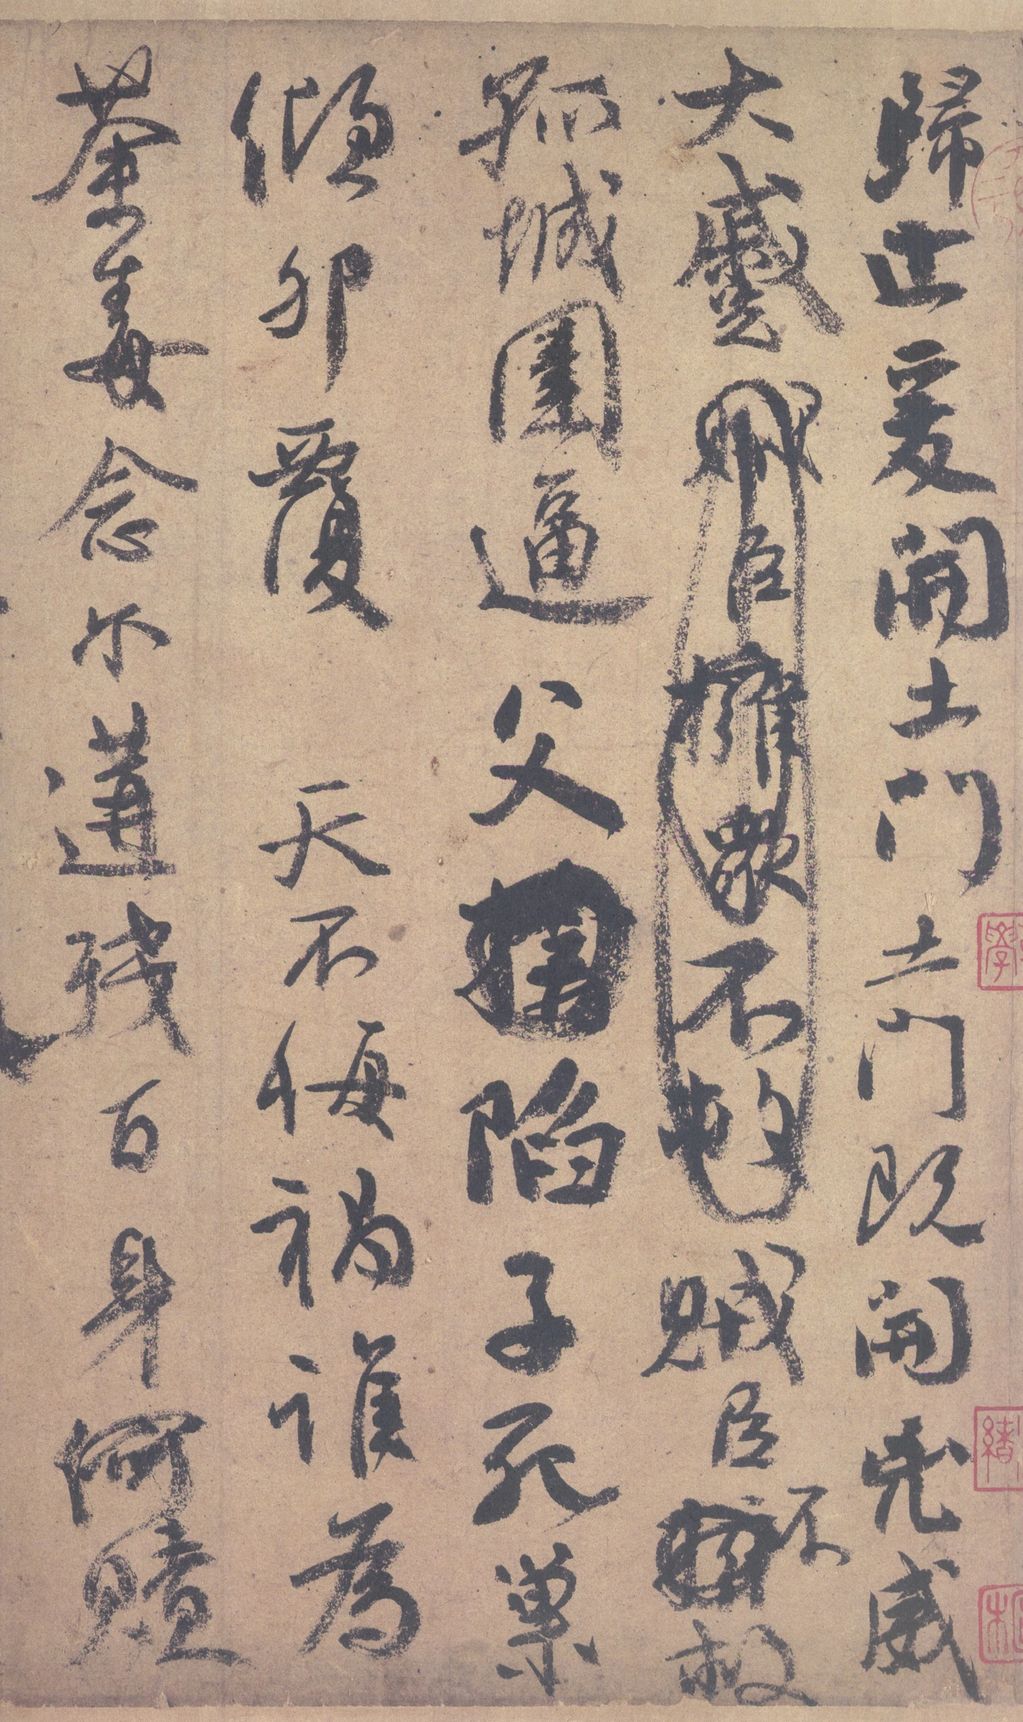 歸止爰開土門土門既開兇威
大蹙賊臣擁眾不救賊臣不救
孤城圍逼父陷子死巢
傾卵覆天不悔禍誰為
荼毒念尔遘殘百身何贖